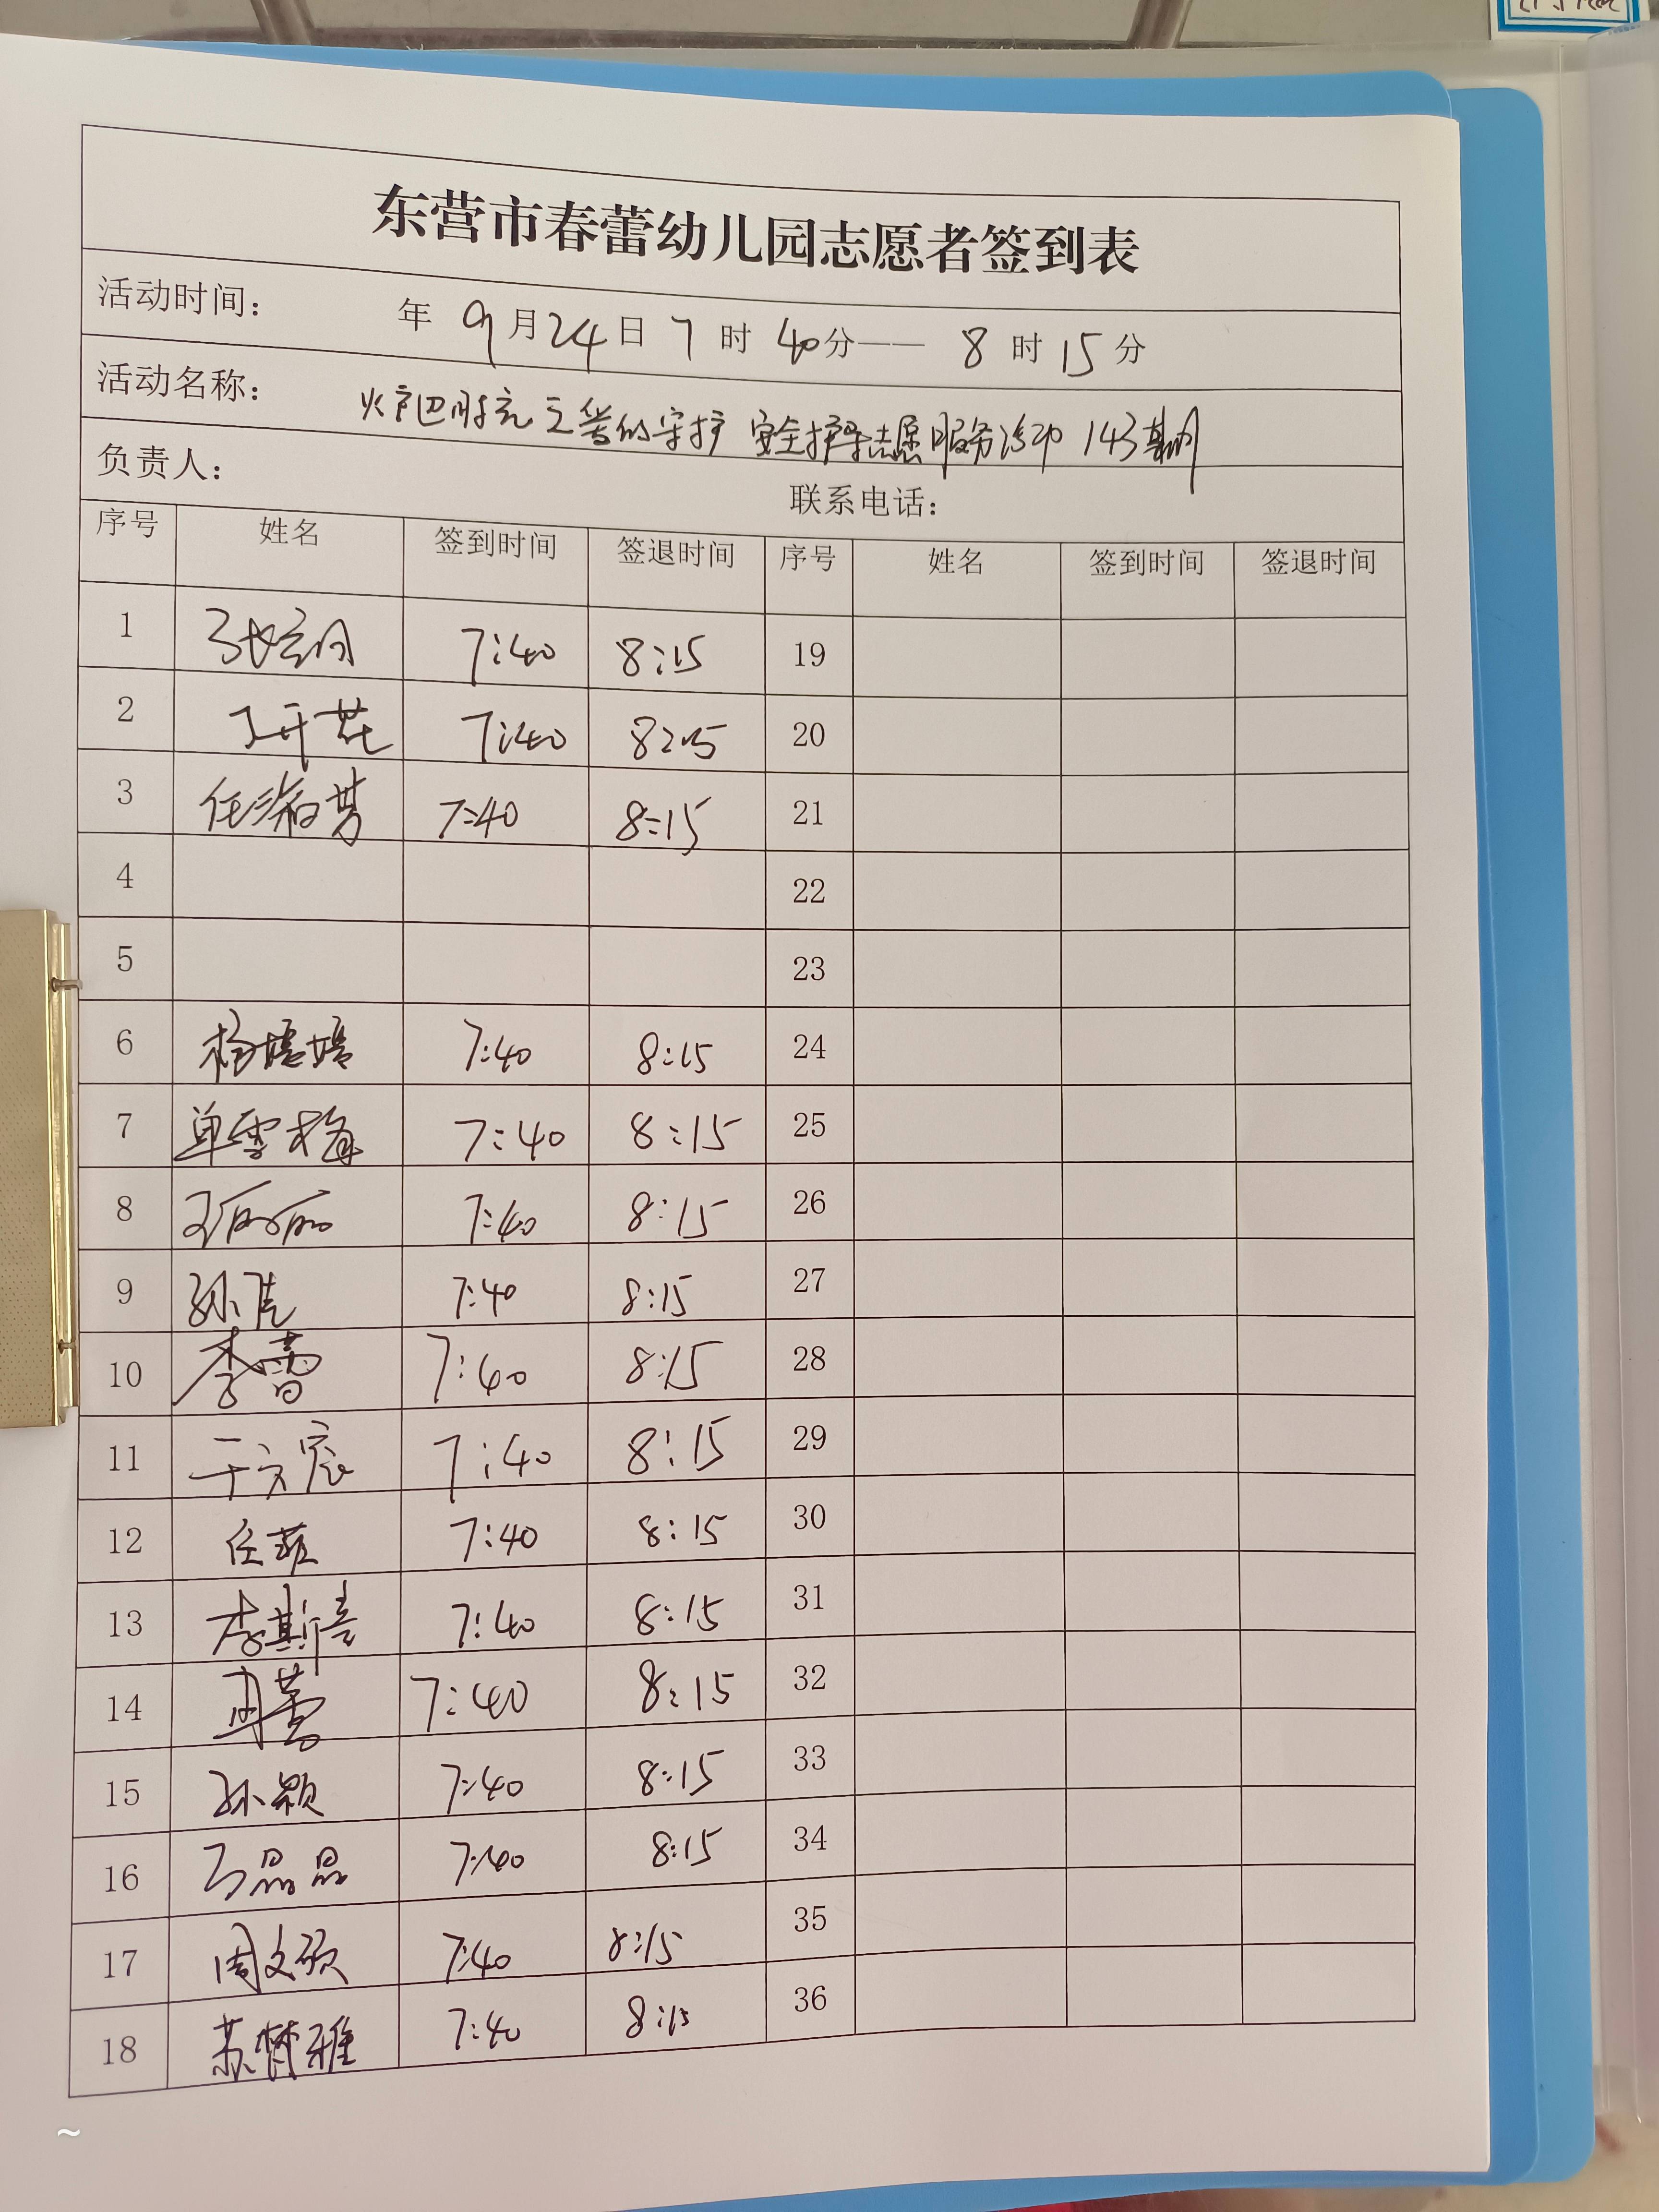 东营市春蕾幼儿园志愿者签到表
活动时间： 年 9月24日 7时40分——8时15分
活动名称： 的守护 安全护导志愿服务活动 143期
负责人： 联系电话：
序号 姓名 签到时间 签退时间 序号 姓名 签到时间 签退时间
1 7:40 8:15 19
2 7:40 8:15 20
3 任淑芳 7:40 8:15 21
4 22
5 23
6 杨婷婷 7:40 8:15 24
7 单雪梅 7:40 8:15 25
8 王丽丽 7:40 8:15 26
9 孙 7:40 8:15 27
10 李蕾 7:40 8:15 28
11 于文宸 7:40 8:15 29
12 任菲 7:40 8:15 30
13 李斯 7:40 8:15 31
14 7:40 8:15 32
15 孙颖 7:40 8:15 33
16 晶晶 7:40 8:15 34
17 周文 7:40 8:15 35
18 苏梦雅 7:40 8:15 36